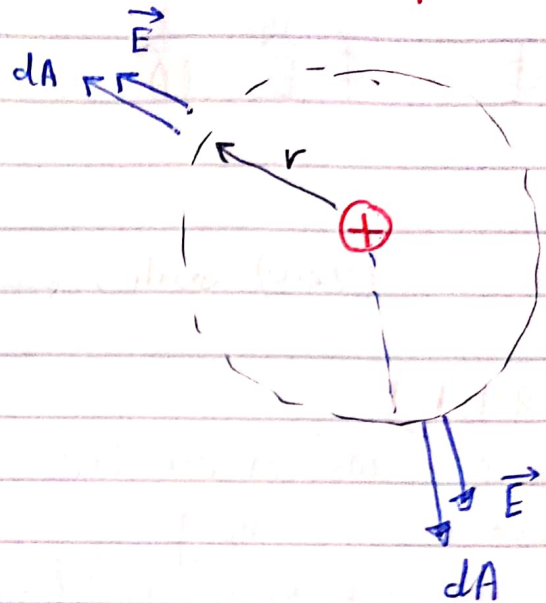 E
dA
r
+
E
dA